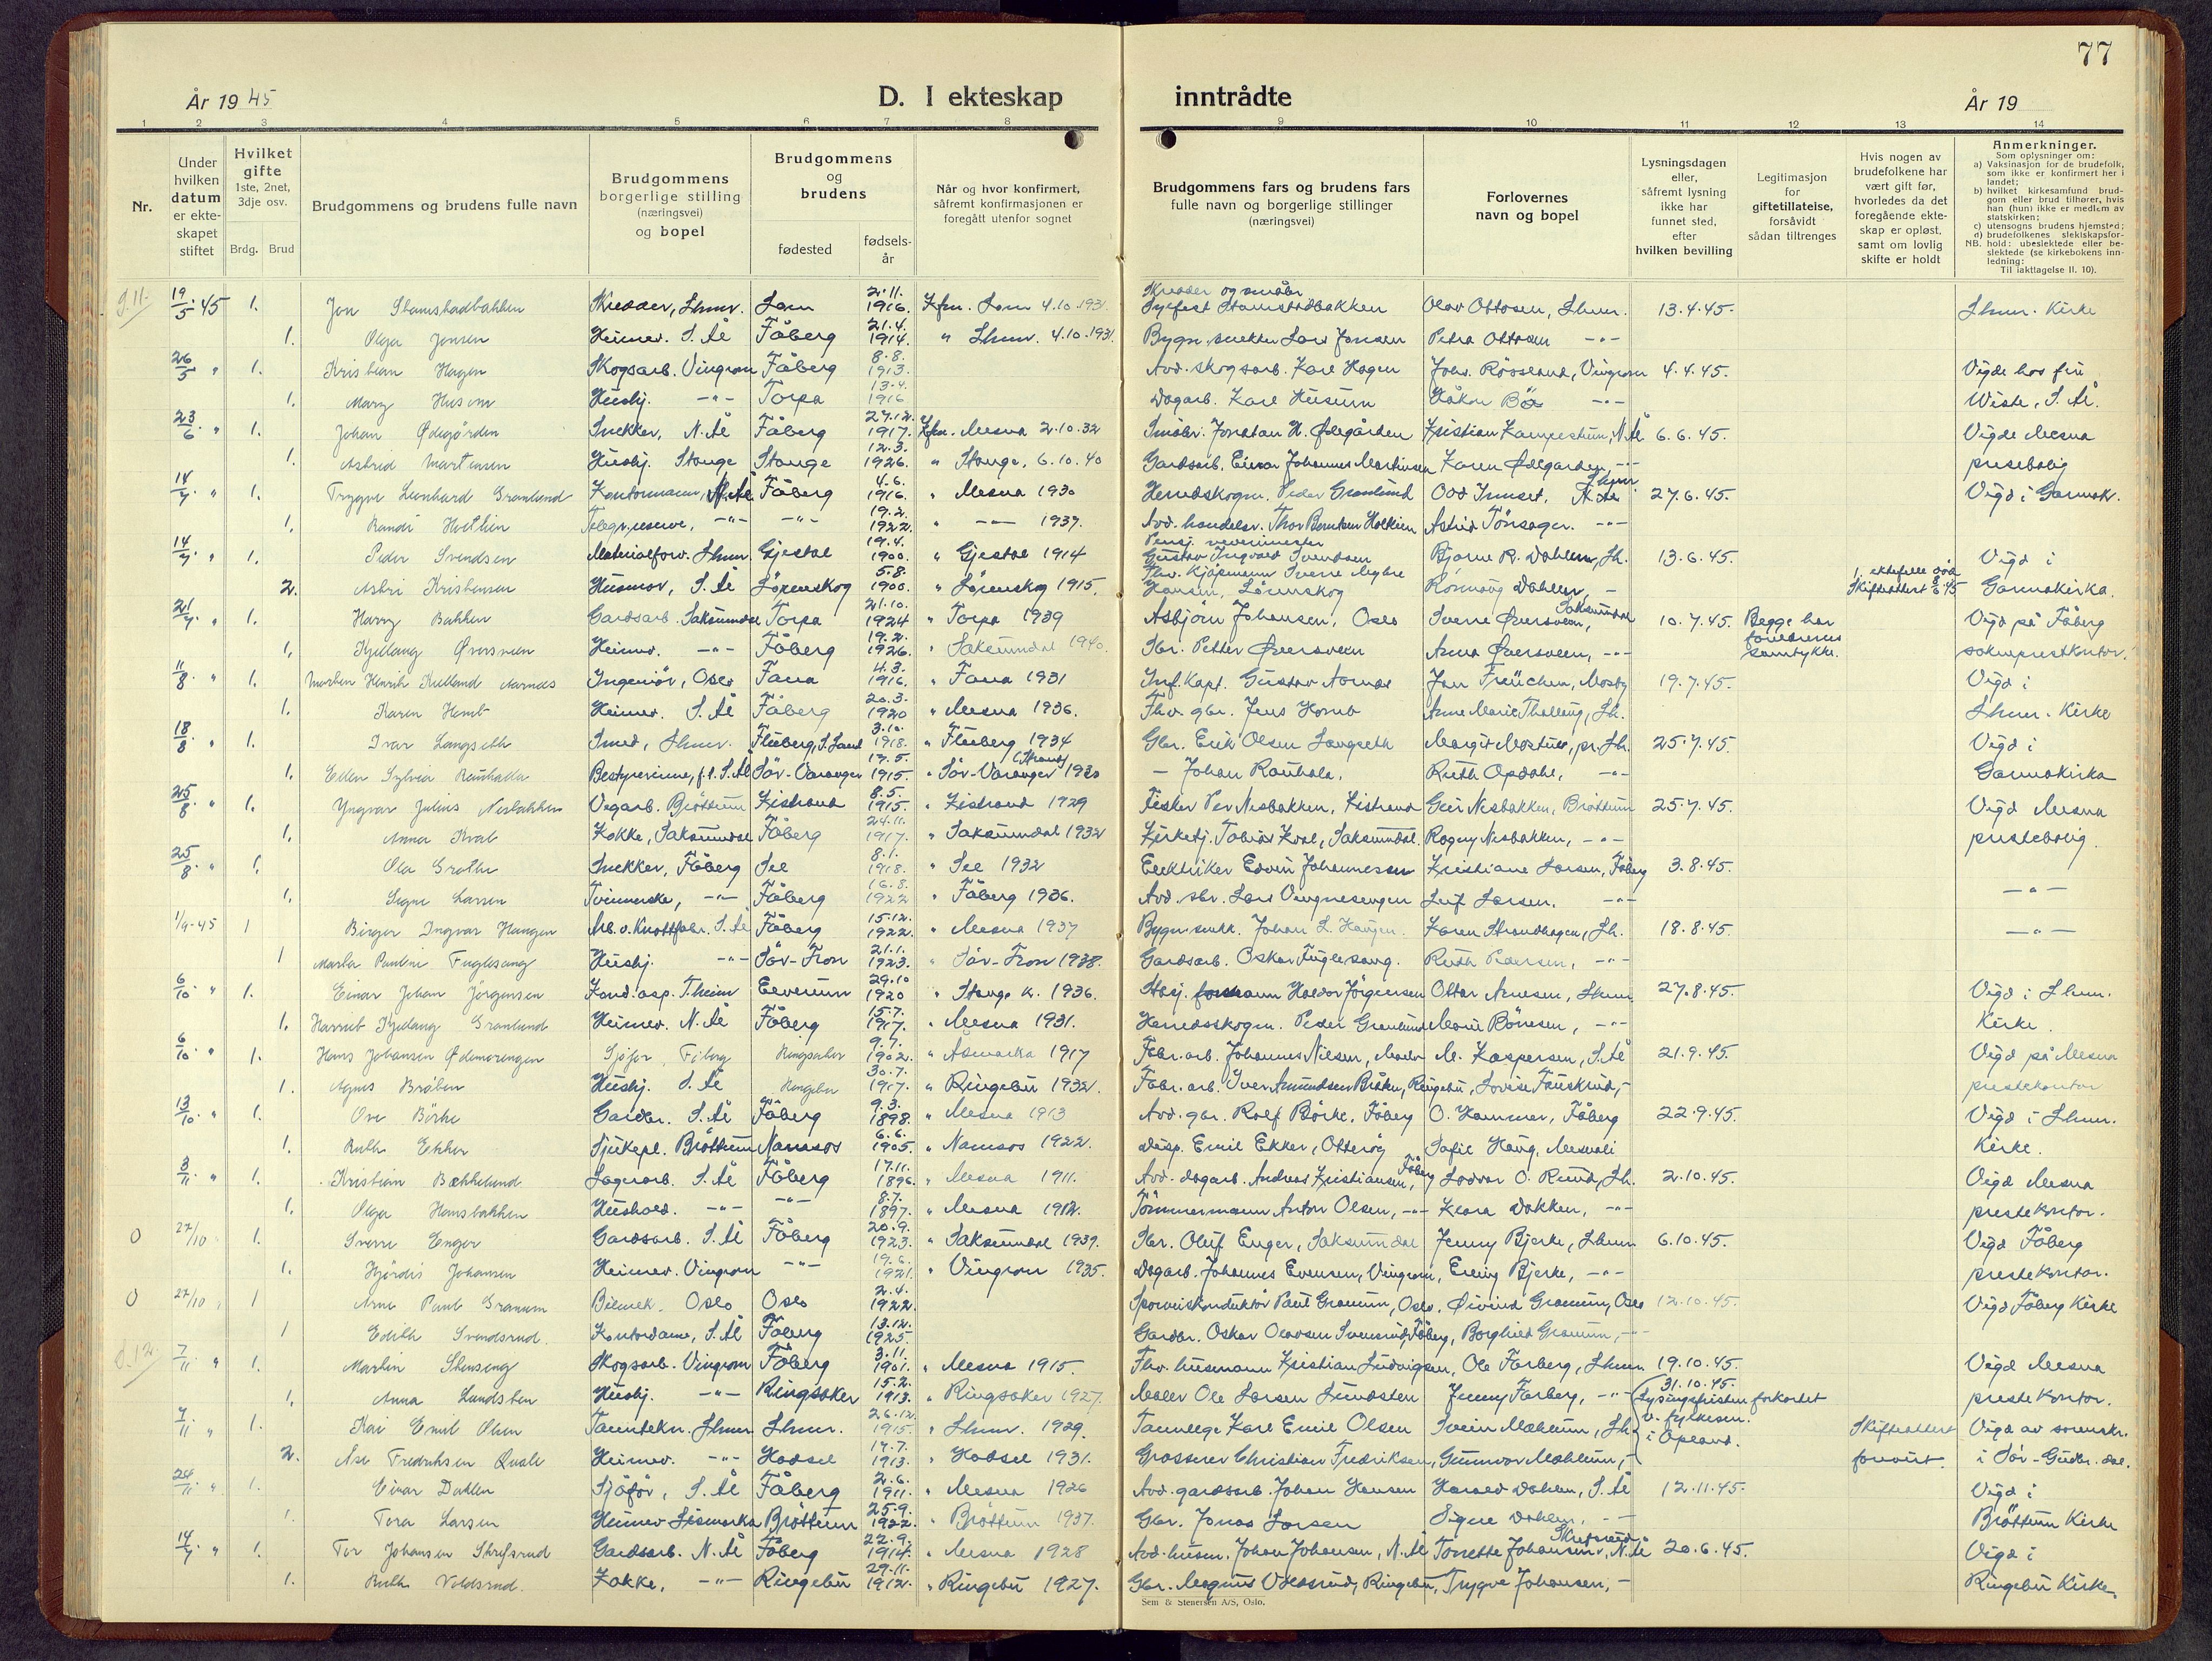 77
År 1945
D. I ekteskap
inntrådte
År 19
1 2 3 4 5 6 7 8 9 10 11 12 13 14
Nr.
Under hvilken datum er ekte-skapet stiftet
Hvilket gifte 1ste, 2net, 3dje osv.
Brdg. Brud
Brudgommens og brudens fulle navn
Brudgommens borgerlige stilling (næringsvei) og bopel
Brudgommens og brudens
fødested
fødsels-år
Når og hvor konfirmert, såfremt konfirmasjonen er foregått utenfor sognet
Brudgommens fars og brudens fars fulle navn og borgerlige stillinger (næringsvei)
Forlovernes navn og bopel
Lysningsdagen eller, såfremt lysning ikke har funnet sted, efter hvilken bevilling
Legitimasjon for giftetillatelse, forsåvidt sådan tiltrenges
Hvis nogen av brudefolkene har vært gift før, hvorledes da det foregående ekte-skap er opløst, samt om lovlig skifte er holdt
Anmerkninger.
Som oplysninger om:
a) Vaksinasjon for de brudefolk, som ikke er konfirmert her i landet;
b) hvilket kirkesamfund brud-gom eller brud tilhører, hvis han (hun) ikke er medlem av statskirken;
c) utensogns brudens hjemsted;
d) brudefolkenes slektskapsfor-hold: ubeslektede eller be-slektede (se kirkebokens inn-ledning:
NB.
Til iakttagelse II. 10).
19/5 45 1. Jon Stamstadbakken Skredder, Lhmr. Lom 2.11. 1916. Kfm. Lom 4.10.1931. Skredder og småbr. Sylfest Stamstadbakken Olav Ottosen, Lhmr. 13.4.45. Lhmr. Kirke
1. Olga Jensen Heimev. S. Ål Fåberg 21.4. 1914. " Lhmr. 4.10.1931. Bygn. snekker Lars Jensen Petra Ottosen -"-
26/5 " 1. Kristian Hagen Skogsarb. Vingrom Fåberg 8.8. 1913. Avd. skogsarb. Karl Hagen Johs. Røssland, Vingrom 4.4.45. Vigde hos fru
1. Mary Husum Hushj. -"- Torpa 13.4. 1916 Dagarb. Karl Husum Håkon Bø -"- Wiste, S. Ål.
23/6 " 1. Johan Ødegården Snekker, N. Ål Fåberg 27.12. 1917. Kfm. Mesna 2.10.32 Småbr. Jonatan H. Ødegården Kristian Kampestuen, N. Ål 6.6.45. Vigde Mesna
1. Astrid Martinsen Hushj. Stange Stange 12.3. 1926. " Stange, 6.10.40 Gardsarb. Einar Johannes Martinsen Karen Ødegarden, -"- prestebolig
14/7 " 1. Trygve Leonhard Granlund Kontormann, N. Ål Fåberg 4.6. 1916. " Mesna 1930 Herredskogm. Peder Granlund Odd Innset, Lhmr. 27.6.45. Vigd i Garmok.
1. Randi -"- -"- 19.2. 1922. " -"- 1937. Astrid Tønsager. -"-
14/7 " 1. Peder Svendsen Materialforv. Lhmr. Gjestal 19.4. 1900. " Gjestal 1914 Gustav Ingvald Svendsen Bjarne R. Dahlen, Lh. 13.6.45. Vigd i
2. Astri Kristensen Husmor, S. Ål Lørenskog 5.8. 1900. " Lørenskog 1915. Fhv. Kjøpmann Sverre Myhre Hansen, Lørenskog Rønnaug Dahlen, - 1. ektefelle død Skifteattest Garmokirka.
21/7 " 1. Harry Bakken Gardsarb. Saksumdal Torpa 21.10. 1924 " Torpa 1939 Asbjørn Johansen, Oslo Sverre Øversveen, Saksumdal 10.7.45. Begge har foreldrenes samtykke. Vigd på Fåberg
1. Kjellaug Øversveen Heimev. -"- Fåberg 19.2. 1926. " Saksumdal 1940. Sbr. Petter Øversveen Anna Øversveen, -"- sokneprestkontor.
11/8 " 1. Morten Henrik Kielland Aarnæs Ingeniør, Oslo Fana 4.3. 1916. " Fana 1931 Inf. Kapt. Gustav Aarnæs Jan Treuchen, Mosby 19.7.45. Vigd i
1. Karen Homb Heimev. S. Ål Fåberg 20.3. 1920 " Mesna 1936. Fhv. gbr. Jens Homb Anne Marie Thallaug, Lh. Lhmr. Kirke
18/8 " 1. Ivar Langseth Smed, Lhmr. Fluberg, S. Land 3.10. 1918. " Fluberg 1934 Gbr. Erik Olsen Langseth Margit Mortuer, pr. Lh. 25.7.45. Vigd i
1. Ellen Sylvia Rauhala Bestyrerinne, S. Ål Sør-Varanger 17.5. 1915. " Sør-Varanger (Strand) 1930 - Johan Rauhala, Ruth Opdahl, -"- Garmokirka
25/8 " 1. Yngvar Julius Nesbakken Vegarb. Brøttum Kistrand 8.5. 1915. " Kistrand 1929 Fisker Per Nesbakken, Kistrand Geir Nesbakken, Brøttum 25.7.45. Vigd Mesna
1. Anna Kval Kokke, Saksumdal Fåberg 24.11. 1917. " Saksumdal 1932 Kirketj. Tobias Kval, Saksumdal. Ragny Nesbakken, -"- prestebolig.
25/8 " 1. Ola Grothe Snekker, Fåberg Sel 8.1. 1918. " Sel 1932 Elektriker Edvin Johannessen Kristiane Larsen, Fåberg 3.8.45. -"-
1. Signe Larsen -"- Fåberg 16.8. 1922 " Fåberg 1936. Avd. sbr. Lars Vingnesengen Leif Larsen. -"-
1/9-45 1 Birger Ingvar Haugen Arb. v. Knottfabr. S. Ål Fåberg 15.12. 1922. " Mesna 1937 Bygn. snekk. Johan L. Haugen. Karen Strandhagen, Lh. 18.8.45. -"-
1 Marta Pauline Fuglesang Hushj. -"- Sør-Fron 21.1. 1923. " Sør-Fron 1938. Gardsarb. Oskar Fuglesang. Ruth Pedersen, -"-
6/10 " 1. Einar Johan Jørgensen Kond.asp. T.heim Elverum 29.10 1920 " Stange k. 1936. Stasj. formann Haldor Jørgensen Ottar Arnesen, Lhmr. 27.8.45. Vigd i Lhmr.
1. Harriet Kjellaug Granlund Heimev. N. Ål Fåberg 15.7. 1917. " Mesna 1931. Herredsskogm. Peder Granlund Marie Bønesen, -"- Kirke.
6/10 " 1. Hans Johansen Ødemorengen Sjåfør, Fåberg Ringsaker 9.7. 1902. " Åsmarka 1917 Fabr.arb. Johannes Nilsen, Moelv M. Kaspersen, S. Ål 21.9.45. Vigd på Mesna
1. Agnes Bråten Hushj. S. Ål Ringebu 30.7. 1917. " Ringebu 1932. Fabr.arb. Iver Amundsen Bråten, Ringebu, Lovise Fauskrud, - prestekontor
13/10 " 1. Ove Børke Gardbr. S. Ål Fåberg 9.3. 1898. " Mesna 1913 Avd. gbr. Rolf Børke, Fåberg O. Hammer, Fåberg 22.9.45. Vigd i Lhmr.
1. Ruth Ekker Sjukepl. Brøttum Namsos 6.6. 1905. " Namsos 1922. Disp. Emil Ekker, Otterøy Sofie Haug, Mesnali Kirke.
3/11 " 1. Kristian Bækkelund Lagerarb. S. Ål Fåberg 17.11. 1896. " Mesna 1911. Avd. dagarb. Andreas Kristiansen, Fåberg Lodvar O. Rund, Lh. 2.10.45. Vigd Mesna
1. Olga Hansbakken Hushold. -"- -"- 8.7. 1897. " Mesna 1912. Tømmermann Anton Olsen, -"- Klara Bakken, -"- prestekontor.
O 27/10 " 1. Sverre Enger Gardsarb. S. Ål Fåberg 20.9. 1923. " Saksumdal 1939. Sbr. Oluf Enger, Saksumdal Jenny Bjerke, Lhmr. 6.10.45. Vigd Fåberg
1. Hjørdis Johansen Heimev. Vingrom -"- 19.6. 1921. " Vingrom 1935. Dagarb. Johannes Evensen, Vingrom, Erling Bjerke, -"- prestekontor.
O 27/10 " 1 Arne Paul Granum Bilmek. Oslo Oslo 2.4. 1922. Sporveiskonduktør Paul Granum, Oslo. Øivind Granum, Oslo 12.10.45. Vigd Fåberg Kirke
1 Edith Svendsrud. Kontordame, S. Ål Fåberg 13.12. 1925. Gardbr. Oskar Olavsen Svensrud, Fåberg, Borghild Granum, -"-
7/11 " 1. Martin Stenseng Skogsarb. Vingrom Fåberg 3.11. 1901. " Mesna 1915. Fhv. husmann Kristian Ludvigsen, Ole Farberg, Lhmr. 19.10.45. Vigd Mesna
1. Anna Lundsten Hushj. -"- Ringsaker 15.2. 1913. " Ringsaker 1927. Maler Ole Larsen Lundsten Jenny Farberg, -"- 31.10.45. Lysingsfristen forkortet v. fylkesm. i Opland. prestekontor.
7/11 " 1. Kai Emil Olsen Tanntekn. Lhmr Lhmr. 26.12. 1915. " Lhmr. 1929. Tannlege Karl Emil Olsen Svein Mæhlum, Lh. Skifteattest Vigd av sorenskr.
2. Åse Fredriksen Quale Heimev. -"- Hadsel 17.7. 1913. " Hadsel 1931. Grosserer Christian Fredriksen, Gunnvor Mæhlum, - forevist. i Sør-Gudbr.dal.
24/11 " 1. Einar Dahlen Sjåfør, S. Ål Fåberg 2.6. 1911. " Mesna 1926 Avd. gardsarb. Johan Hansen Harald Dahlen, S. Ål 12.11.45. Vigd i
1. Tora Larsen Heimev Lismarka Brøttum 25.9. 1922. " Brøttum 1937. Gbr. Jonas Larsen Signe Dahlen. -"- Brøttum Kirke
14/7 " 1. Tor Johansen Skrefsrud Gardsarb. N. Ål Fåberg 22.9. 1914. " Mesna 1928 Avd. husm. Johan Johansen, N. Ål Torette Johansen Skrefsrud, N. Ål 20.6.45. Vigd i
1. Ruth Voldsrud. Kokke, -"- Ringebu 29.11. 1912. " Ringebu 1927. Gbr. Magnus Voldsrud, Ringebu, Trygve Johansen, - Ringebu Kirke
Sem & Stenersen A/S, Oslo.